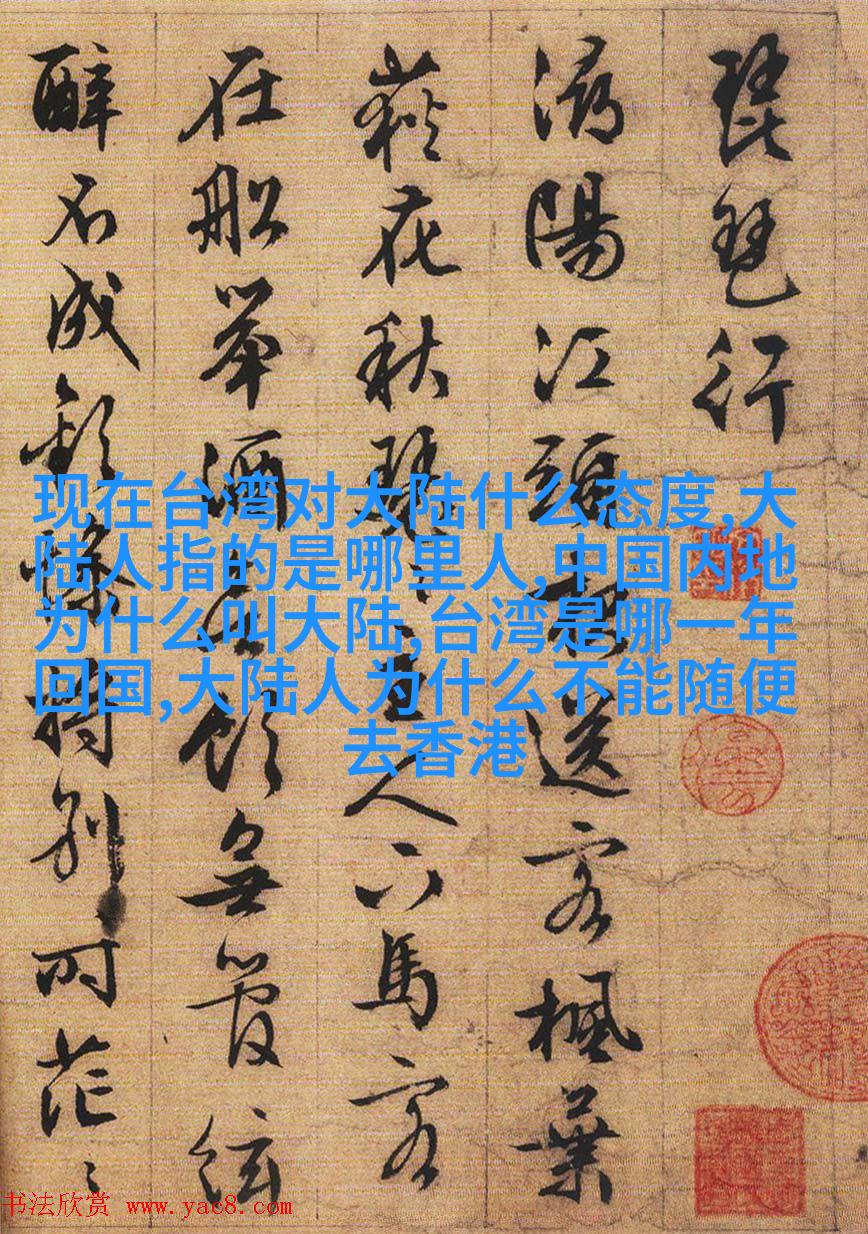 琵琶行
潯陽江頭夜送客楓葉
荻花秋瑟〻主人下馬客
在船舉酒欲飲無管絃
醉不成歡慘將別別時茫〻
现在台湾对大陆什么态度,大
陆人指的是哪里人,中国内地
为什么叫大陆,台湾是哪一年
回国,大陆人为什么不能随便
去香港
书法欣赏 www.yac8.com